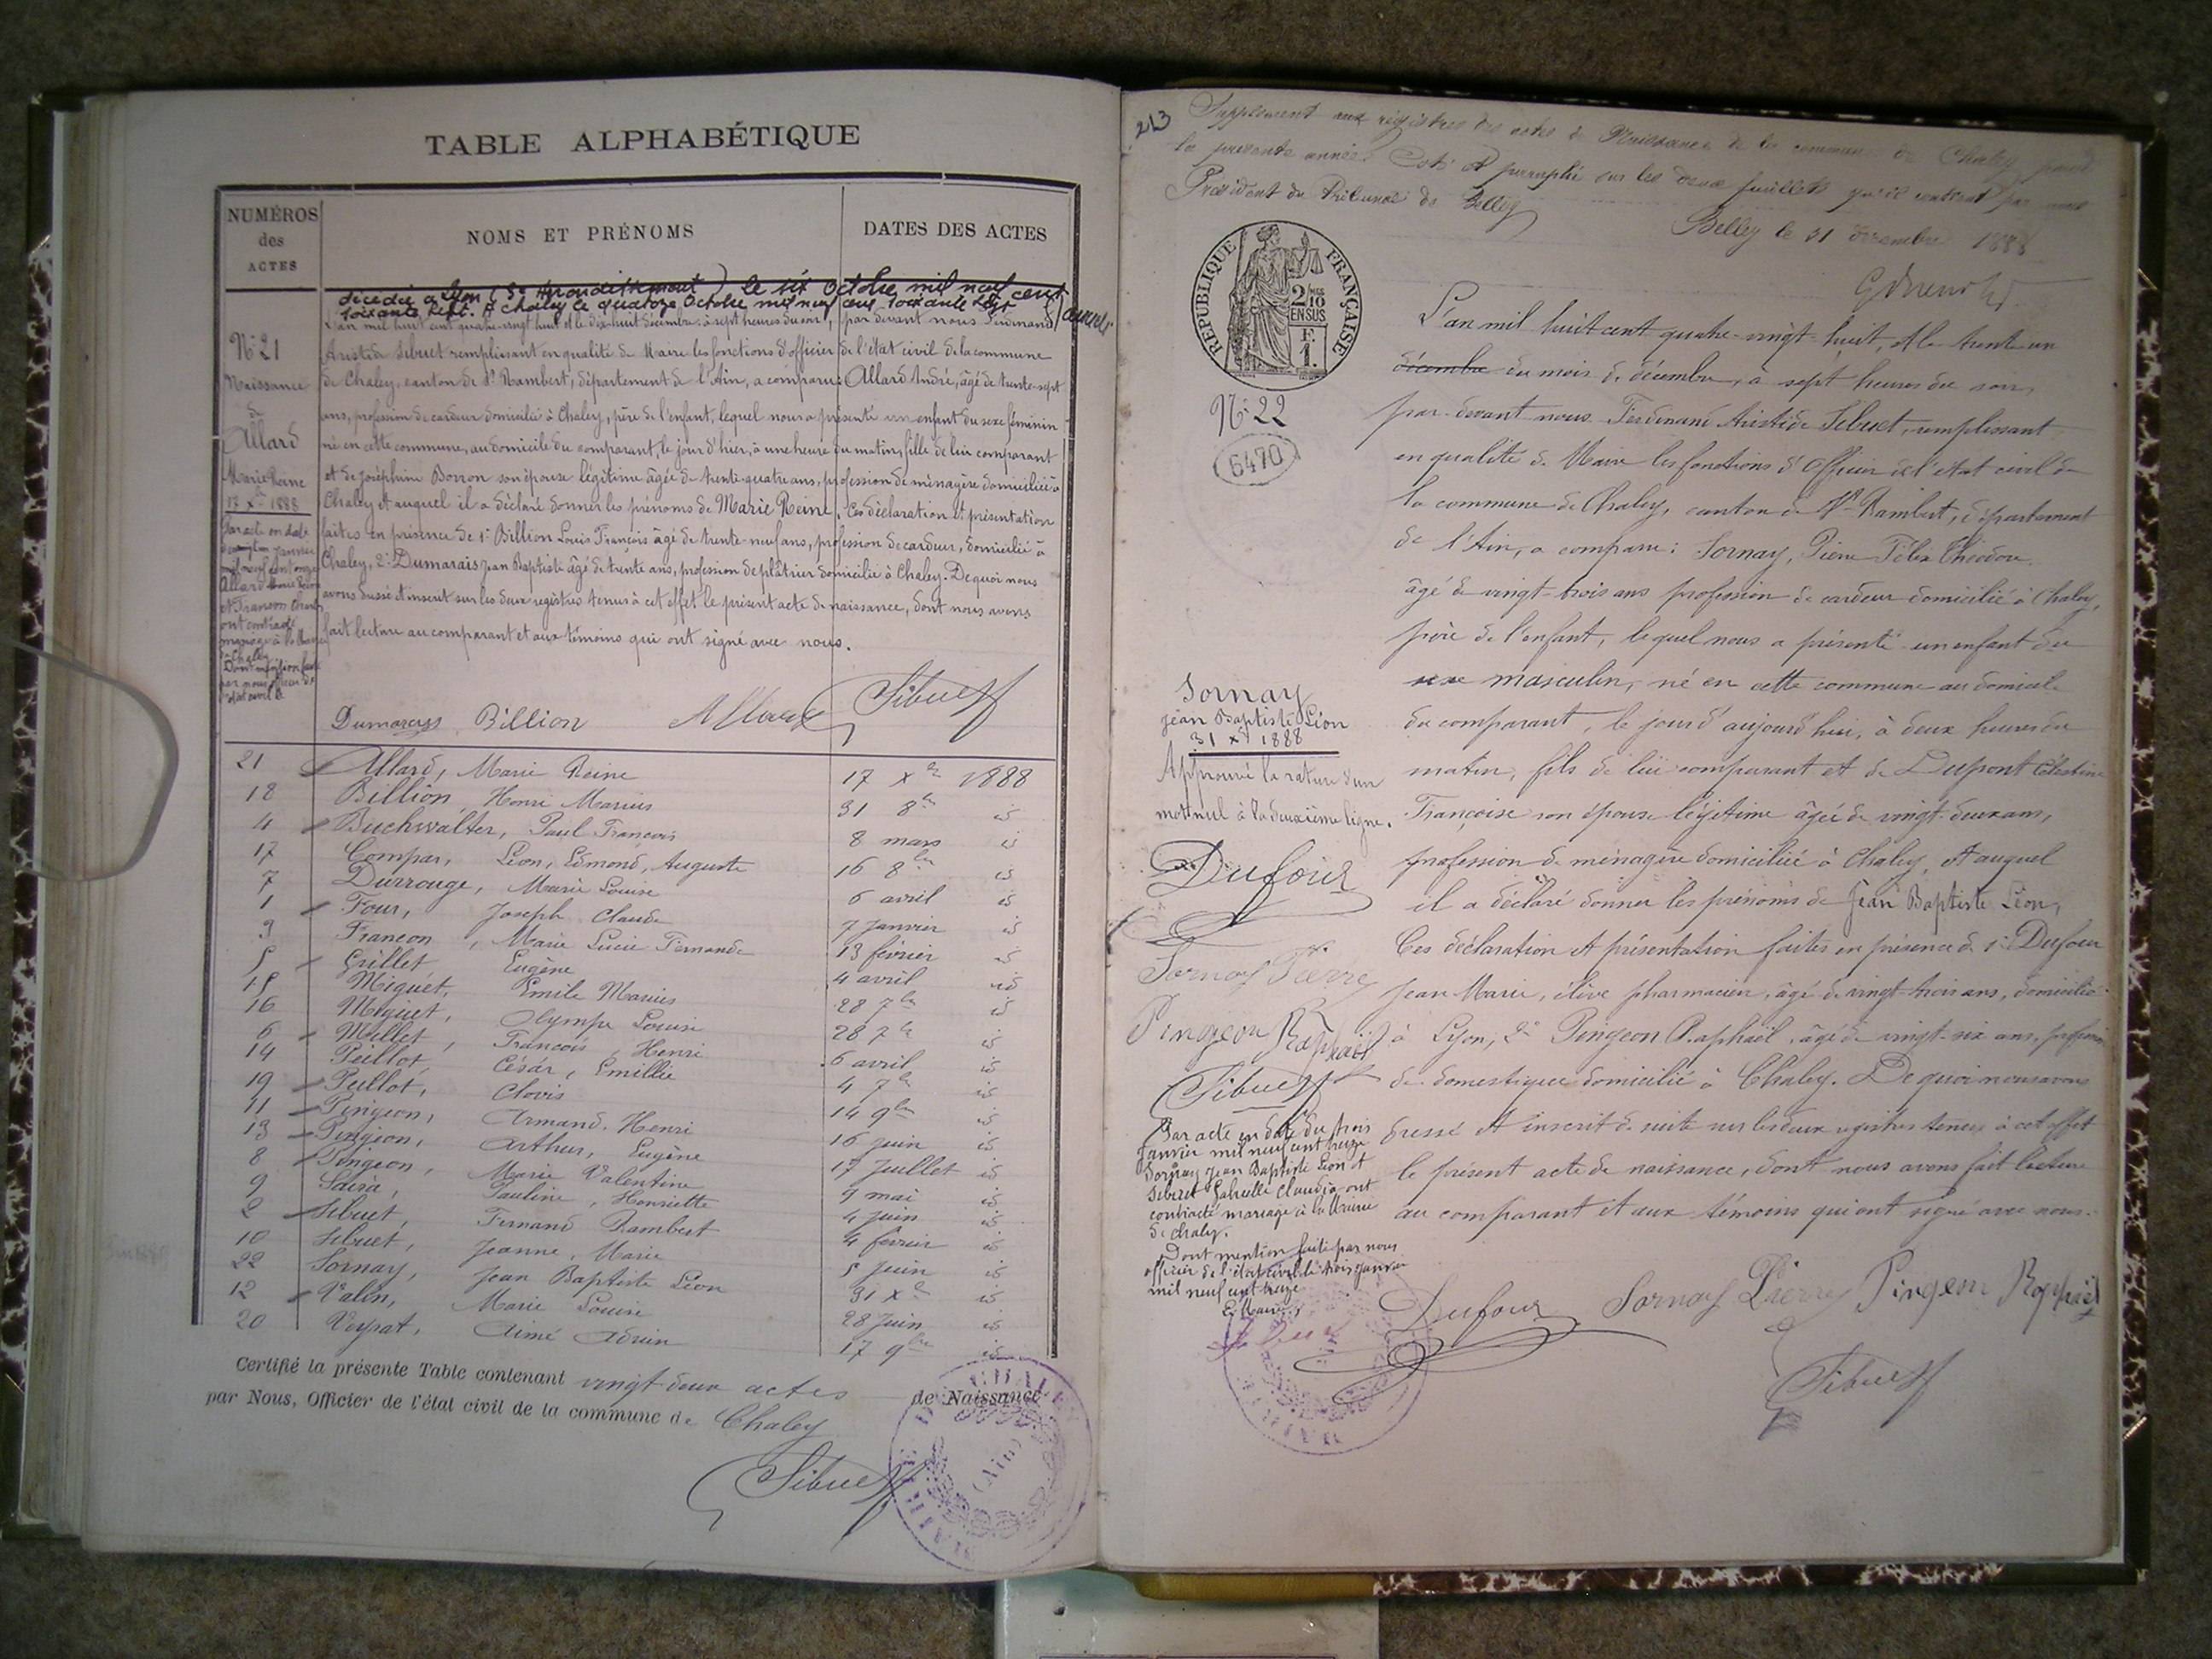 TABLE ALPHABÉTIQUE
NUMÉROS des ACTES
NOMS ET PRÉNOMS
DATES DES ACTES
décédée a Lyon (3e Arrondissement) le six Octobre mil neuf cent
soixante sept. A chaley le quatorze Octobre mil neuf cent soixante sept
L'an mil huit cent quatre-vingt huit et le dix-huit décembre à sept heures du soir, par devant nous Ferdinand
Aristide Sibuet remplissant en qualité de Maire les fonctions d'officier de l'état civil de la commune
de Chaley, canton de St Rambert, département de l'Ain, a comparu: Allard André, âgé de trente-sept
ans, profession de cardeur domicilié à Chaley, père de l'enfant, lequel nous a présenté un enfant du sexe féminin
né en cette commune, au domicile du comparant, le jour d'hier, à une heure du matin, fille de lui comparant
et de Joséphine Borron son épouse légitime âgée de trente-quatre ans, profession de ménagère domiciliée à
Chaley et auquel il a déclaré donner les prénoms de Marie Reine. Ces déclaration et présentation
faites en présence de 1° Billion Louis François âgé de trente-neuf ans, profession de cardeur, domicilié à
Chaley, 2° Dumarais Jean Baptiste âgé de trente ans, profession de plâtrier domicilié à Chaley. De quoi nous
avons dressé et inscrit sur les deux registres tenus à cet effet le présent acte de naissance, dont nous avons
fait lecture au comparant et aux témoins qui ont signé avec nous.
N° 21
Naissance
de
Allard
Marie Reine
17 Xbre 1888
Par acte en date
du vingt un janvier
mil neuf cent onze
Allard Marie Reine
et Françon
ont contracté
mariage à la Mairie
de Chaley
Dont mention faite
par nous officier de
l'état civil le
Dumarais Billion Allard Sibuet
21 Allard, Marie Reine 17 Xbre 1888
18 Billion, Henri Marius 31 8bre id
4 Buchwalter, Paul François 8 mars id
17 Compar, Léon, Edmond, Auguste 16 8bre id
7 Durrouge, Marie Louise 6 avril id
1 Four, Joseph Claude 7 janvier id
3 Françon, Marie Lucie Fernande 13 février id
5 Grillet Eugène 4 avril id
15 Miguet, Emile Marius 28 7bre id
16 Miguet, Olympe Louise 28 7bre id
6 Millet, François, Henri 6 avril id
14 Peillot, César, Emillie 4 7bre id
19 Peillot, Clovis 14 9bre id
11 Pingeon, Armand, Henri 16 juin id
13 Pingeon, Arthur, Eugène 17 Juillet id
8 Pingeon, Marie Valentine 9 mai id
9 Pauline, Henriette 4 juin id
2 Sibuet, Fernand Rambert 4 février id
10 Sibuet, Jeanne, Marie 5 Juin id
22 Sornay, Jean Baptiste Léon 31 Xbre id
12 Valin, Marie Louise 28 Juin id
20 Veyrat, Aimé Adrien 17 9bre id
Certifié la présente Table contenant vingt-deux actes de Naissance
par Nous, Officier de l'état civil de la commune de Chaley
Sibuet
MAIRIE DE CHALEY (Ain)
213
Supplément aux registres des actes de Naissance de la commune de Chaley pour
la présente année. Coté et paraphé sur les deux feuillets qu'il contient par nous
Président du Tribunal de Belley
Belley le 31 décembre 1888
RÉPUBLIQUE FRANÇAISE
2/10 EN SUS
F. 1.
N° 22
6470
L'an mil huit cent quatre-vingt-huit, et le trente un
décembre du mois de décembre, à sept heures du soir,
par-devant nous Ferdinand Aristide Sibuet, remplissant
en qualité de Maire les fonctions d'Officier de l'état civil de
la commune de Chaley, canton de St Rambert, département
de l'Ain, a comparu: Sornay, Pierre Félix Théodore,
âgé de vingt-trois ans profession de cardeur domicilié à Chaley,
père de l'enfant, lequel nous a présenté un enfant du
sexe masculin, né en cette commune au domicile
du comparant, le jour d'aujourd'hui, à deux heures du
matin, fils de lui comparant et de Dupont Célestine
Françoise son épouse légitime âgée de vingt-deux ans,
profession de ménagère domiciliée à Chaley, et auquel
il a déclaré donner les prénoms de Jean Baptiste Léon,
Ces déclaration et présentation faites en présence de 1° Dufour
Jean Marie, élève pharmacien, âgé de vingt-trois ans, domicilié
à Lyon, 2° Pingeon Raphaël, âgé de vingt-six ans, profession
de domestique domicilié à Chaley. De quoi nous avons
dressé et inscrit de suite sur les deux registres tenus à cet effet
le présent acte de naissance, dont nous avons fait lecture
au comparant et aux témoins qui ont signé avec nous.
Sornay
Jean Baptiste Léon
31 Xbre 1888
Approuvé la rature d'un
mot nul à la deuxième ligne.
Dufour
Sornay Pierre
Pingeon Raphaël
Sibuet
Par acte en date du trois
Janvier mil neuf cent treize
Sornay Jean Baptiste Léon et
Sibuet Gabrielle Claudia ont
contracté mariage à la Mairie
de Chaley.
Dont mention faite par nous
officier de l'état civil le trois janvier
mil neuf cent treize
Le Maire
Dufour Sornay Pierre Pingeon Raphaël
Sibuet
MAIRIE